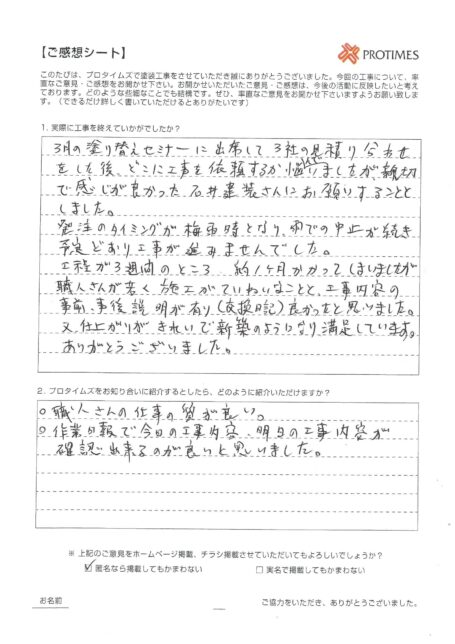 【ご感想シート】
PROTIMES
このたびは、プロタイムズで塗装工事をさせていただき誠にありがとうございました。今回の工事について、率
直なご意見・ご感想をお聞かせ下さい。お聞かせいただいたご意見・ご感想は、今後の活動に反映したいと考え
ております。どのような些細なことでも結構です。ぜひ、率直なご意見をお聞かせ下さいますようお願い致しま
す。（できるだけ詳しく書いていただけるとありがたいです）
1. 実際に工事を終えていかがでしたか？
3月の塗り替えセミナーに出席して3社の見積り合わせ
をした後、どこに工事を依頼するか悩みましたが、親切
で感じが良かった石井建装さんにお願いすることと
しました。
発注のタイミングが梅雨時となり、雨での中止が続き
予定どおり工事が進みませんでした。
工程が3週間のところ 約1ヶ月かかってしまいましたが
職人さんが若く施工がていねいなことと、工事内容の
事前、事後説明が有り（交換日記）良かったと思いました。
又、仕上がりがきれいで新築のようになり満足しています。
ありがとうございました。
2. プロタイムズをお知り合いに紹介するとしたら、どのように紹介いただけますか？
○職人さんの仕事の質が良い。
○作業日報で今日の工事内容、明日の工事内容が
確認出来るのが良いと思いました。
※ 上記のご意見をホームページ掲載、チラシ掲載させていただいてもよろしいでしょうか？
☑ 匿名なら掲載してもかまわない □ 実名で掲載してもかまわない
お名前
ご協力をいただき、ありがとうございました。